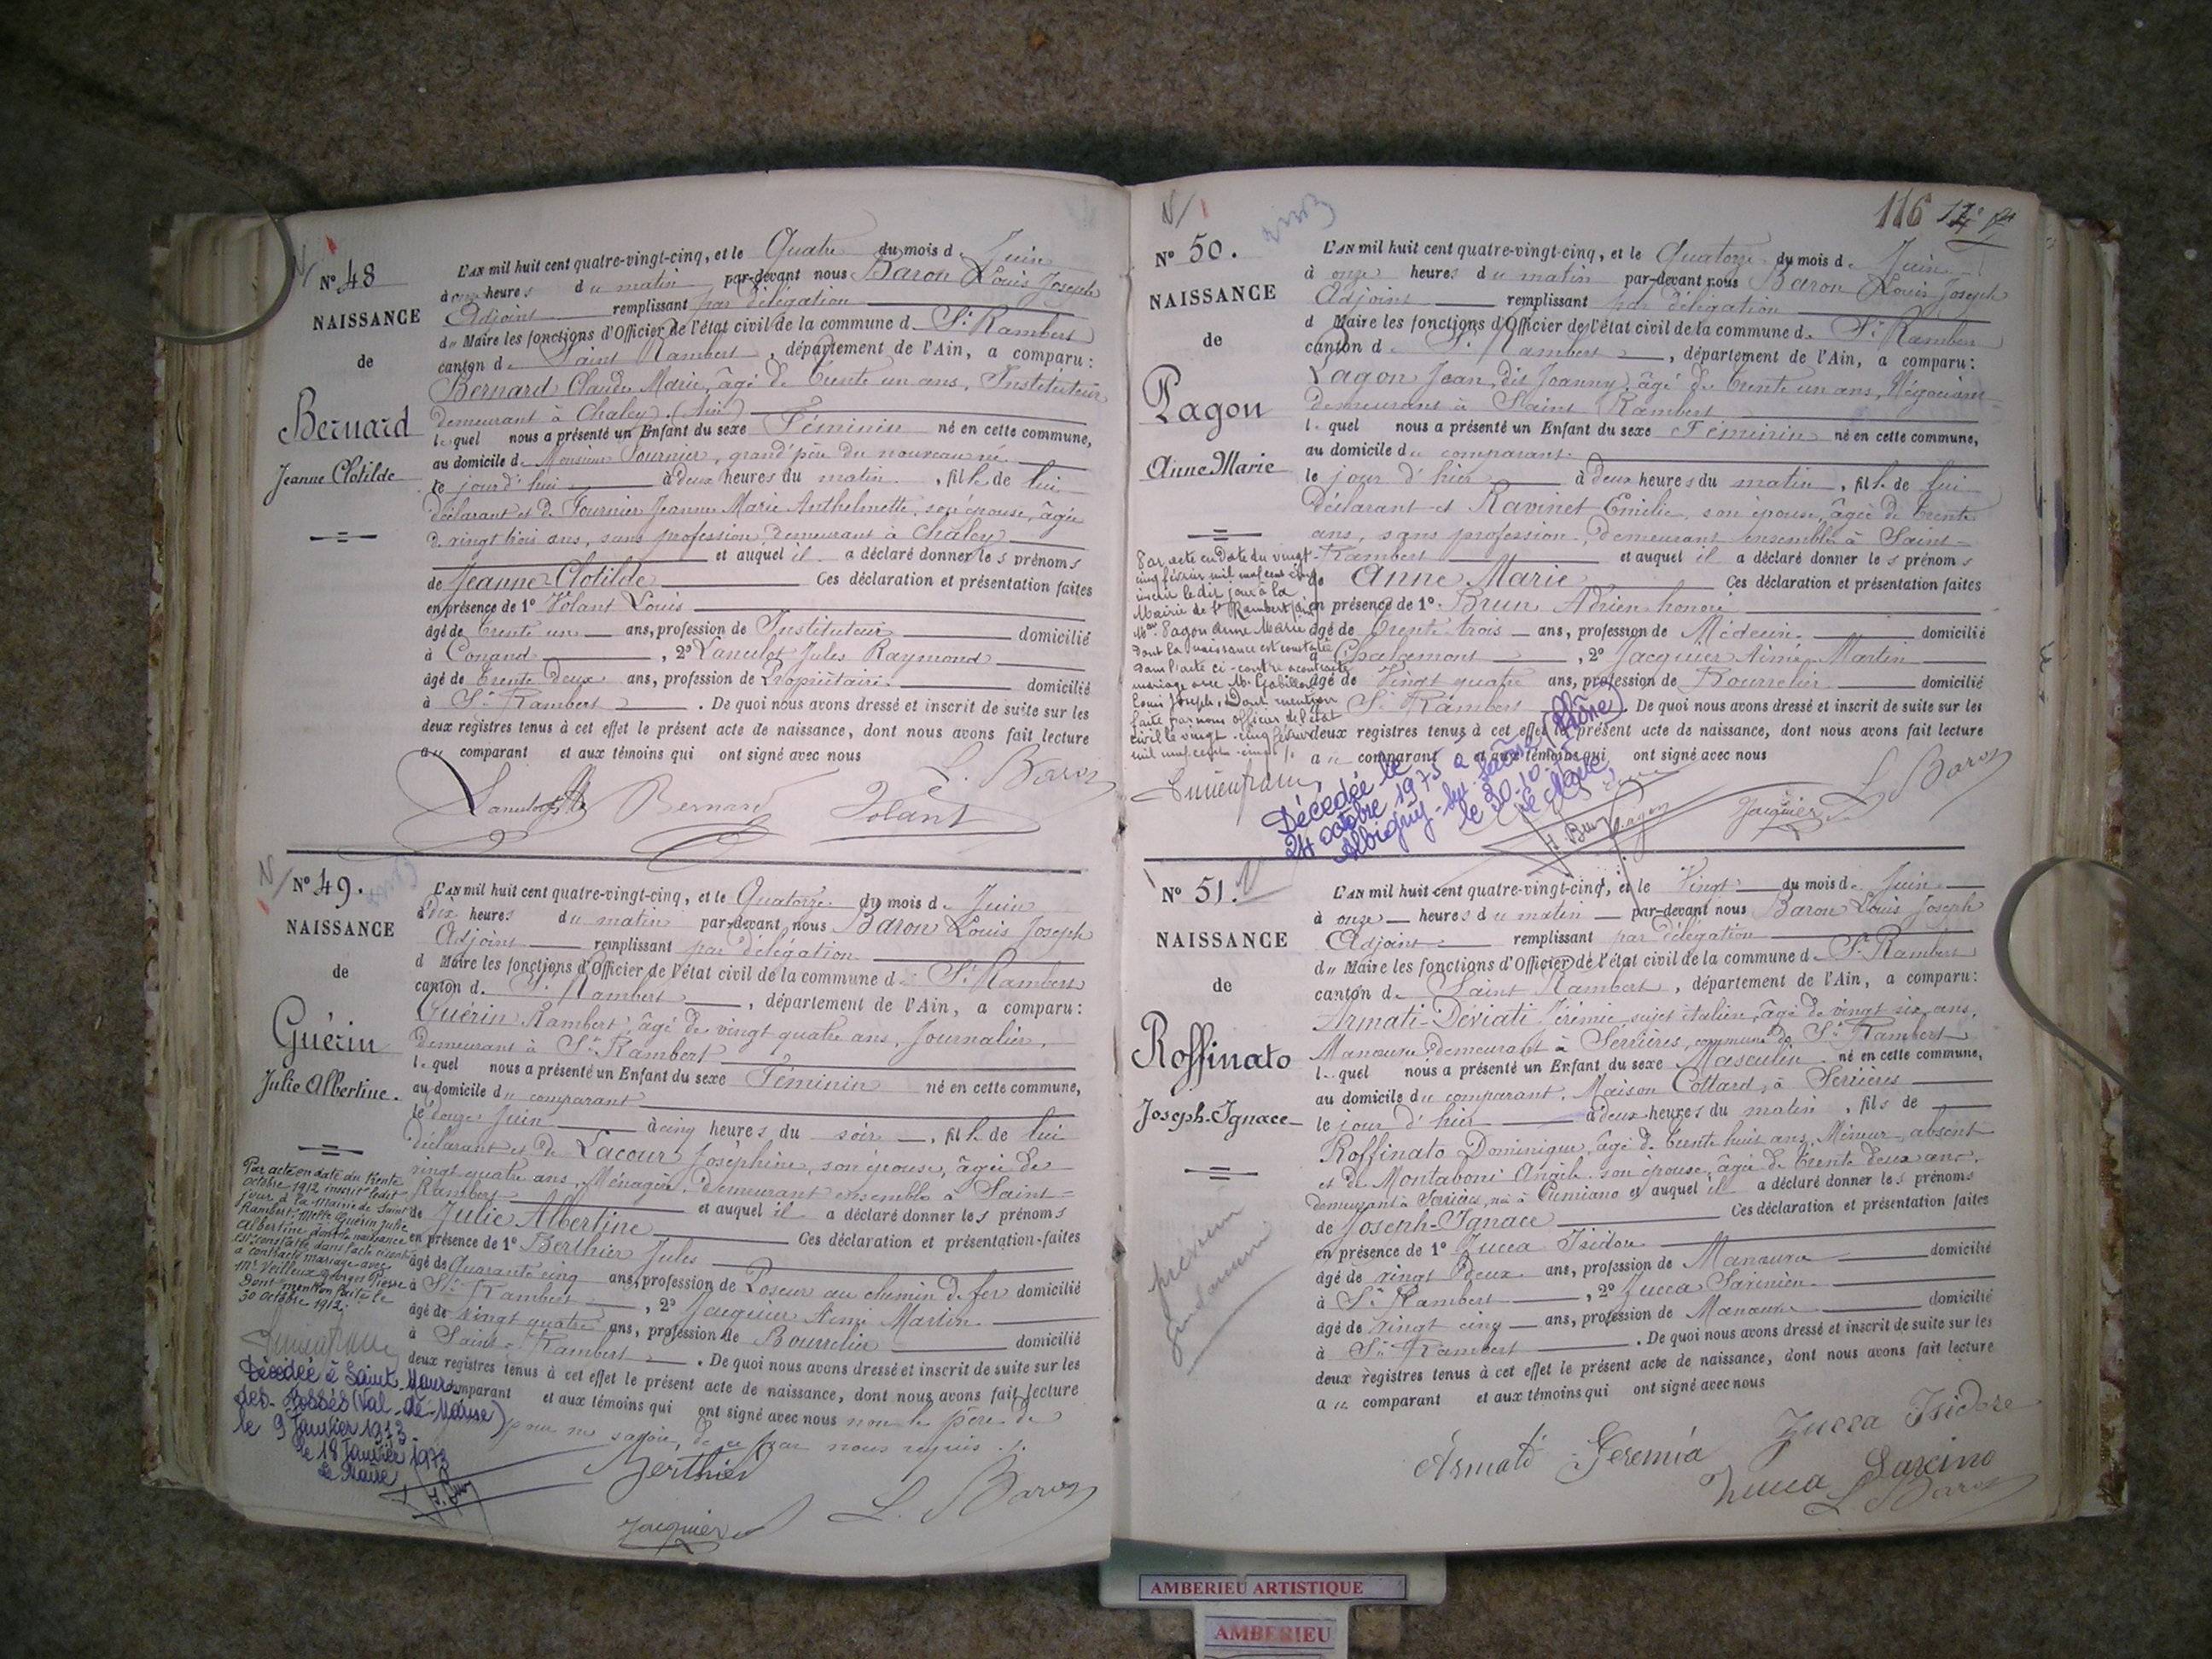 N° 48
NAISSANCE
de
Bernard
Jeanne Clotilde
L'AN mil huit cent quatre-vingt-cinq, et le Quatre du mois de Juin
à onze heures du matin par-devant nous Baron Louis Joseph
Adjoint remplissant par délégation
du Maire les fonctions d'Officier de l'état civil de la commune de St Rambert
canton de Saint Rambert, département de l'Ain, a comparu:
Bernard Claude Marie, âgé de trente un ans, Instituteur
demeurant à Chaley (Ain)
lequel nous a présenté un Enfant du sexe Féminin né en cette commune,
au domicile de Monsieur Fournier, grand'père du nouveau né
le jourd'hui à deux heures du matin, fille de lui
déclarant et de Fournier Jeanne Marie Anthelmette, son épouse, âgée
de vingt trois ans, sans profession, demeurant à Chaley
et auquel il a déclaré donner les prénoms
de Jeanne Clotilde Ces déclaration et présentation faites
en présence de 1° Volant Louis
âgé de trente un ans, profession de Instituteur domicilié
à Conand, 2° Lanulet Jules Raymond
âgé de trente deux ans, profession de Propriétaire domicilié
à St Rambert. De quoi nous avons dressé et inscrit de suite sur les
deux registres tenus à cet effet le présent acte de naissance, dont nous avons fait lecture
au comparant et aux témoins qui ont signé avec nous
L. Baron
Bernard Volant
N° 49.
NAISSANCE
de
Guérin
Julie Albertine.
L'AN mil huit cent quatre-vingt-cinq, et le Quatorze du mois de Juin
à dix heures du matin par-devant nous Baron Louis Joseph
Adjoint remplissant par délégation
d Maire les fonctions d'Officier de l'état civil de la commune de St Rambert
canton de St Rambert, département de l'Ain, a comparu:
Guérin Rambert, âgé de vingt quatre ans, Journalier,
demeurant à St Rambert
lequel nous a présenté un Enfant du sexe Féminin né en cette commune,
au domicile du comparant
le douze Juin à cinq heures du soir, fille de lui
déclarant et de Lacour Joséphine, son épouse, âgée de
vingt quatre ans, Ménagère, demeurant ensemble à Saint-
Rambert et auquel il a déclaré donner les prénoms
de Julie Albertine Ces déclaration et présentation faites
en présence de 1° Berthier Jules
âgé de Quarante cinq ans, profession de Poseur au chemin de fer domicilié
à St Rambert, 2° Jacquier Aimé Martin
âgé de vingt quatre ans, profession de Bourrelier domicilié
à Saint-Rambert. De quoi nous avons dressé et inscrit de suite sur les
deux registres tenus à cet effet le présent acte de naissance, dont nous avons fait lecture
comparant et aux témoins qui ont signé avec nous non le père de
pour ne savoir, de ce par nous requis.
Berthier
L. Baron
Jacquier
Par acte en date du trente
octobre 1912 inscrit ledit
jour à la mairie de Saint
Rambert, Melle Guérin Julie
Albertine dont la naissance
est constatée dans l'acte ci-contre
a contracté mariage avec
Mr Veilleux Georges Pierre
Dont mention faite le
30 octobre 1912.
Décédée à Saint-Maur-
des-Fossés (Val-de-Marne)
le 9 Janvier 1973
le 18 Janvier 1973
Le Maire
116
N° 50.
NAISSANCE
de
Pagon
Anne Marie
L'AN mil huit cent quatre-vingt-cinq, et le Quatorze du mois de Juin
à onze heures du matin par-devant nous Baron Louis Joseph
Adjoint remplissant par délégation
d Maire les fonctions d'Officier de l'état civil de la commune de St Rambert
canton de St Rambert, département de l'Ain, a comparu:
Pagon Jean, dit Joanny, âgé de trente un ans, Négociant
demeurant à Saint Rambert
lequel nous a présenté un Enfant du sexe Féminin né en cette commune,
au domicile du comparant.
le jour d'hier à deux heures du matin, fille de lui
déclarant et Ravinet Emilie, son épouse, âgée de trente
ans, sans profession, demeurant ensemble à Saint-
Rambert et auquel il a déclaré donner les prénoms
de Anne Marie Ces déclaration et présentation faites
en présence de 1° Brun Adrien honoré
âgé de trente trois ans, profession de Médecin domicilié
à Chalamont, 2° Jacquier Aimé Martin
âgé de Vingt quatre ans, profession de Bourrelier domicilié
à St Rambert. De quoi nous avons dressé et inscrit de suite sur les
deux registres tenus à cet effet le présent acte de naissance, dont nous avons fait lecture
au comparant et aux témoins qui ont signé avec nous
L. Baron
Jacquier
Pagon
Par acte en date du vingt-
cinq février mil neuf cent cinq
inscrit le dit jour à la
Mairie de St Rambert (Ain)
Pagon Anne Marie
dont la naissance est constatée
dans l'acte ci-contre a contracté
mariage avec Mr Gabillon
Louis Joseph, Dont mention
faite par nous officier de l'état
civil le vingt-cinq février
mil neuf-cent-cinq
Décédée le
24 octobre 1975 à
Albigny-sur-Saône (Rhône)
le 30.10.75
Le Maire,
N° 51.
NAISSANCE
de
Roffinato
Joseph-Ignace
L'AN mil huit cent quatre-vingt-cinq, et le Vingt du mois de Juin
à onze heures du matin par-devant nous Baron Louis Joseph
Adjoint remplissant par délégation
du Maire les fonctions d'Officier de l'état civil de la commune de St Rambert
canton de Saint Rambert, département de l'Ain, a comparu:
Armati-Dériati Jérémie, sujet italien, âgé de vingt six ans,
Manœuvre, demeurant à Serrières, commune de St Rambert
lequel nous a présenté un Enfant du sexe Masculin né en cette commune,
au domicile du comparant, Maison Collard, à Serrières
le jour d'hier à deux heures du matin, fils de
Roffinato Dominique, âgé de trente huit ans, Mineur, absent
et de Montaboni Angèle, son épouse, âgée de trente deux ans,
demeurant à Serrières, né à Cumiano et auquel il a déclaré donner les prénoms
de Joseph-Ignace Ces déclaration et présentation faites
en présence de 1° Zucca Isidore
âgé de vingt deux ans, profession de Manœuvre domicilié
à St Rambert, 2° Zucca Saxinien
âgé de vingt cinq ans, profession de Manœuvre domicilié
à St Rambert. De quoi nous avons dressé et inscrit de suite sur les
deux registres tenus à cet effet le présent acte de naissance, dont nous avons fait lecture
au comparant et aux témoins qui ont signé avec nous
Armati Geremia
Zucca Isidore
Zucca Saxino
L. Baron
AMBERIEU ARTISTIQUE
AMBERIEU